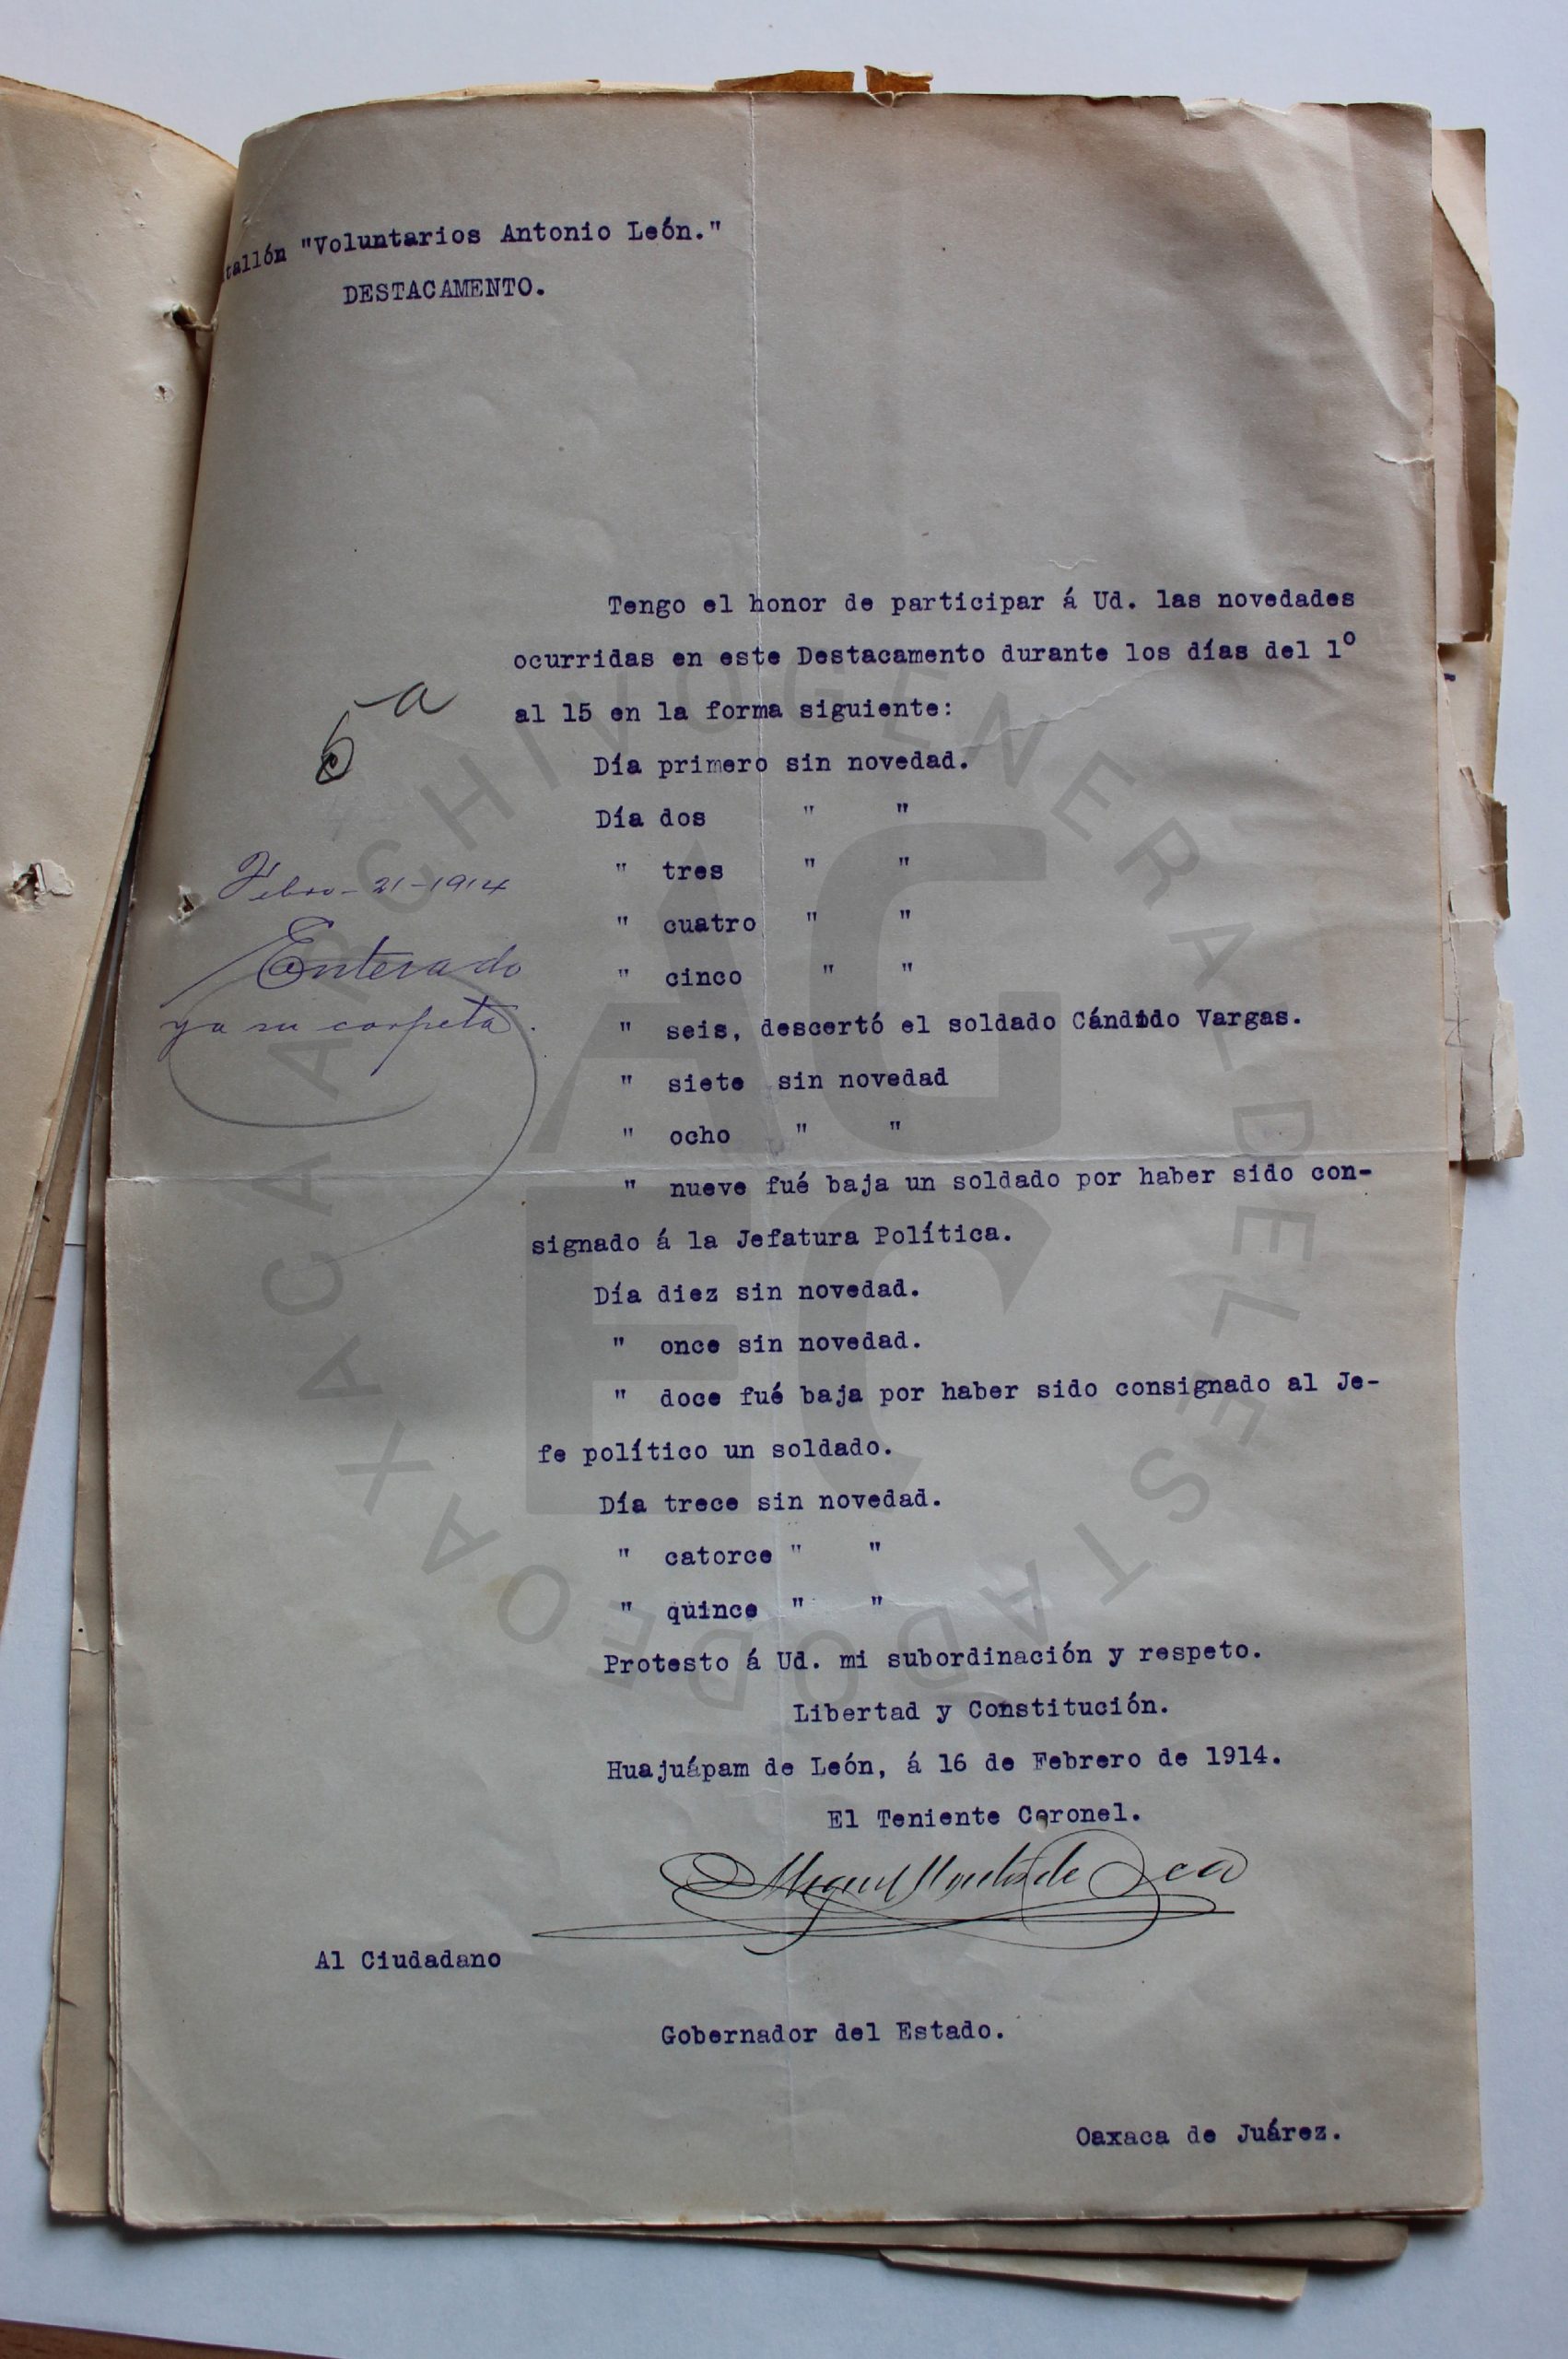 tallón "Voluntarios Antonio León."
DESTACAMENTO.
Tengo el honor de participar á Ud. las novedades
ocurridas en este Destacamento durante los días del 1º
al 15 en la forma siguiente:
Día primero sin novedad.
Día dos " "
" tres " "
" cuatro " "
" cinco " "
" seis, descertó el soldado Cándido Vargas.
" siete sin novedad
" ocho " "
" nueve fué baja un soldado por haber sido con-
signado á la Jefatura Política.
Día diez sin novedad.
" once sin novedad.
" doce fué baja por haber sido consignado al Je-
fe político un soldado.
Día trece sin novedad.
" catorce " "
" quince " "
Protesto á Ud. mi subordinación y respeto.
Libertad y Constitución.
Huajuápam de León, á 16 de Febrero de 1914.
El Teniente Coronel.
Miguel Montes de Oca
Al Ciudadano
Gobernador del Estado.
Oaxaca de Juárez.
6a
Febro-21-1914
Enterado
y a su carpeta.
ARCHIVO GENERAL DEL ESTADO DE OAXACA
AGEO